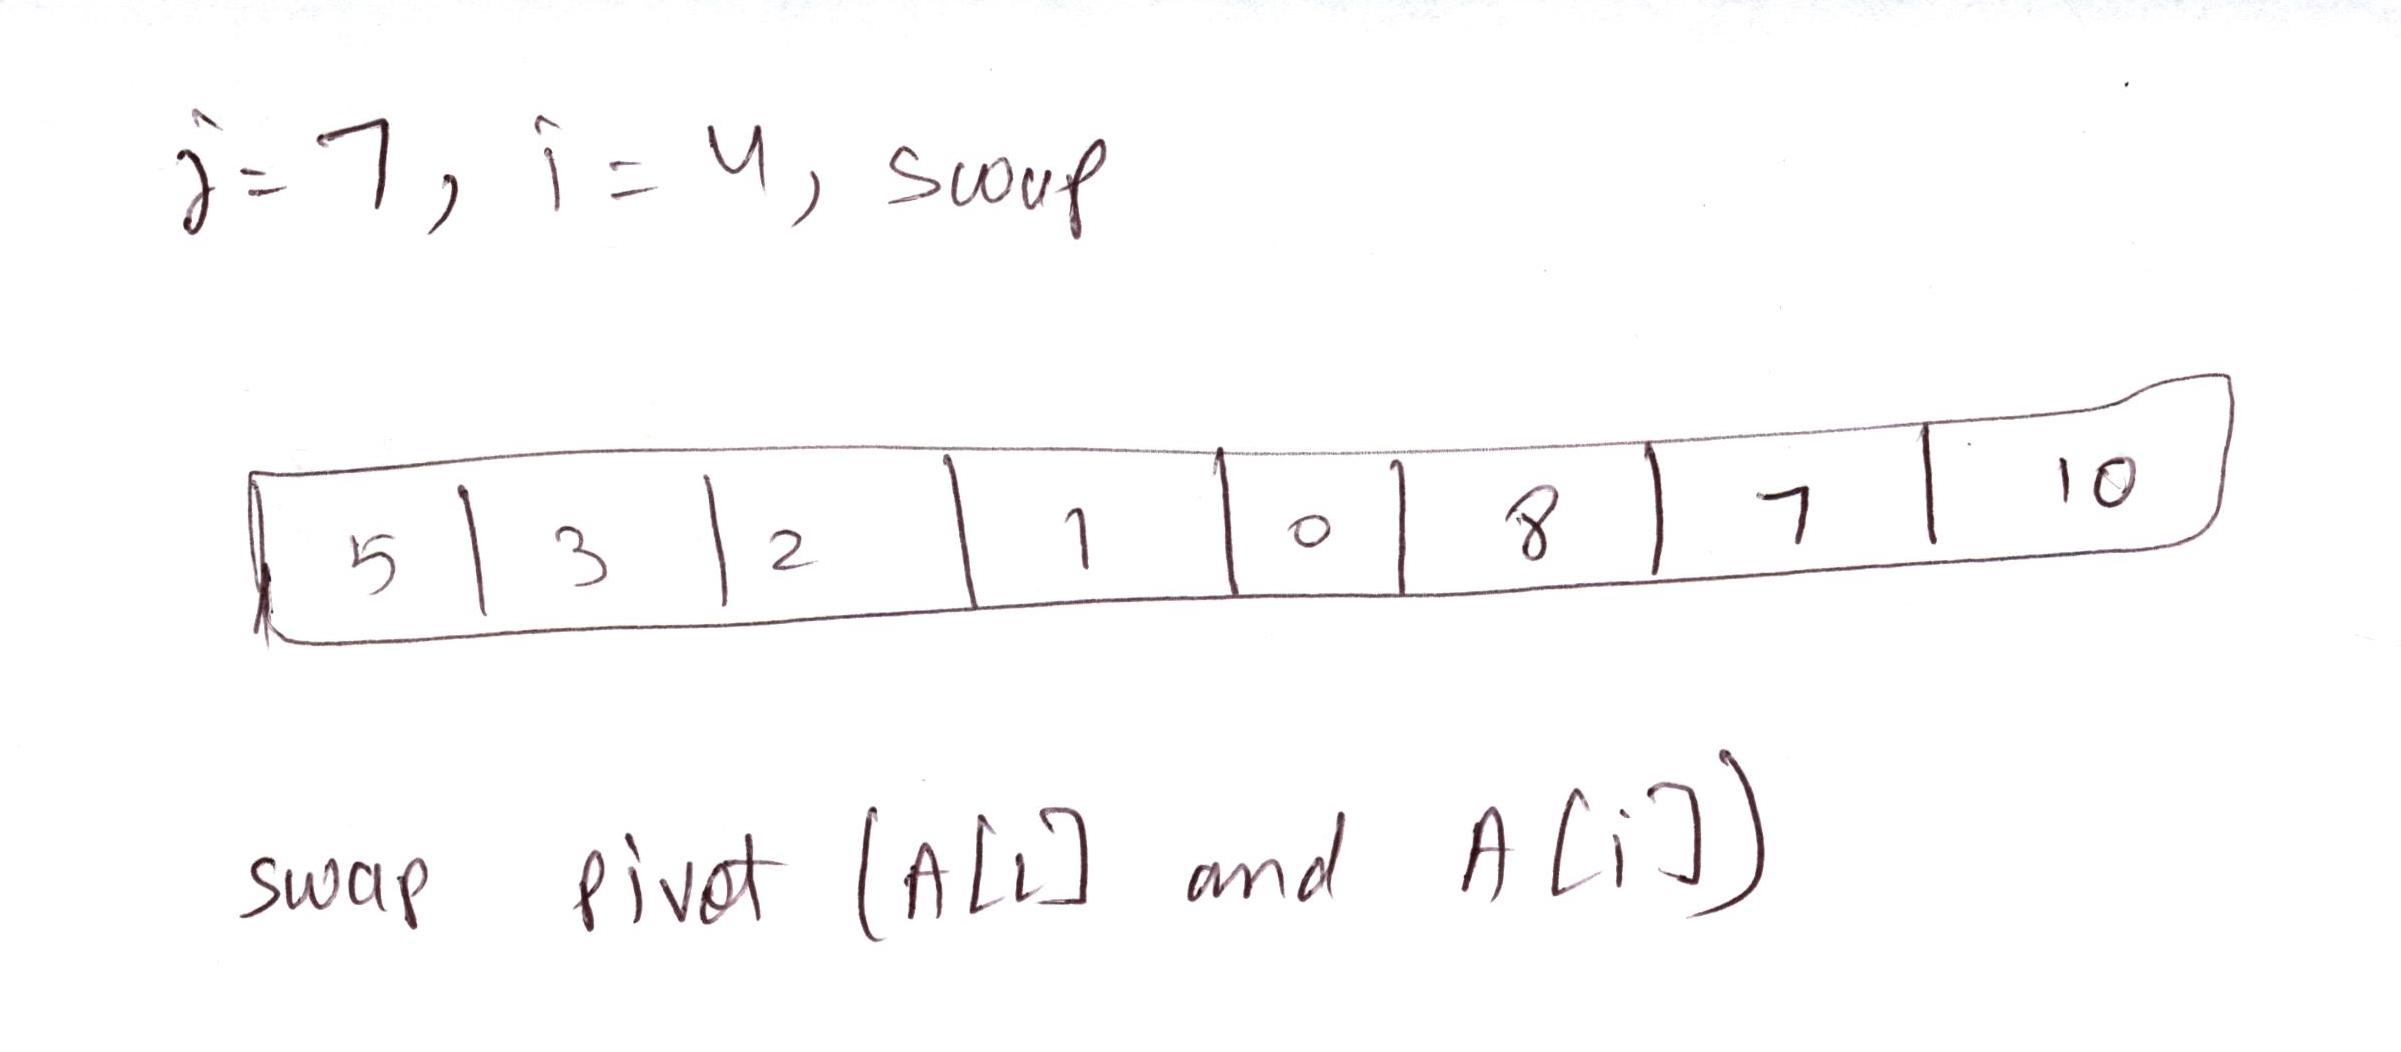 j=7, i=4, swap
5 | 3 | 2 | 1 | 0 | 8 | 7 | 10
swap pivot (A[i] and A[i])